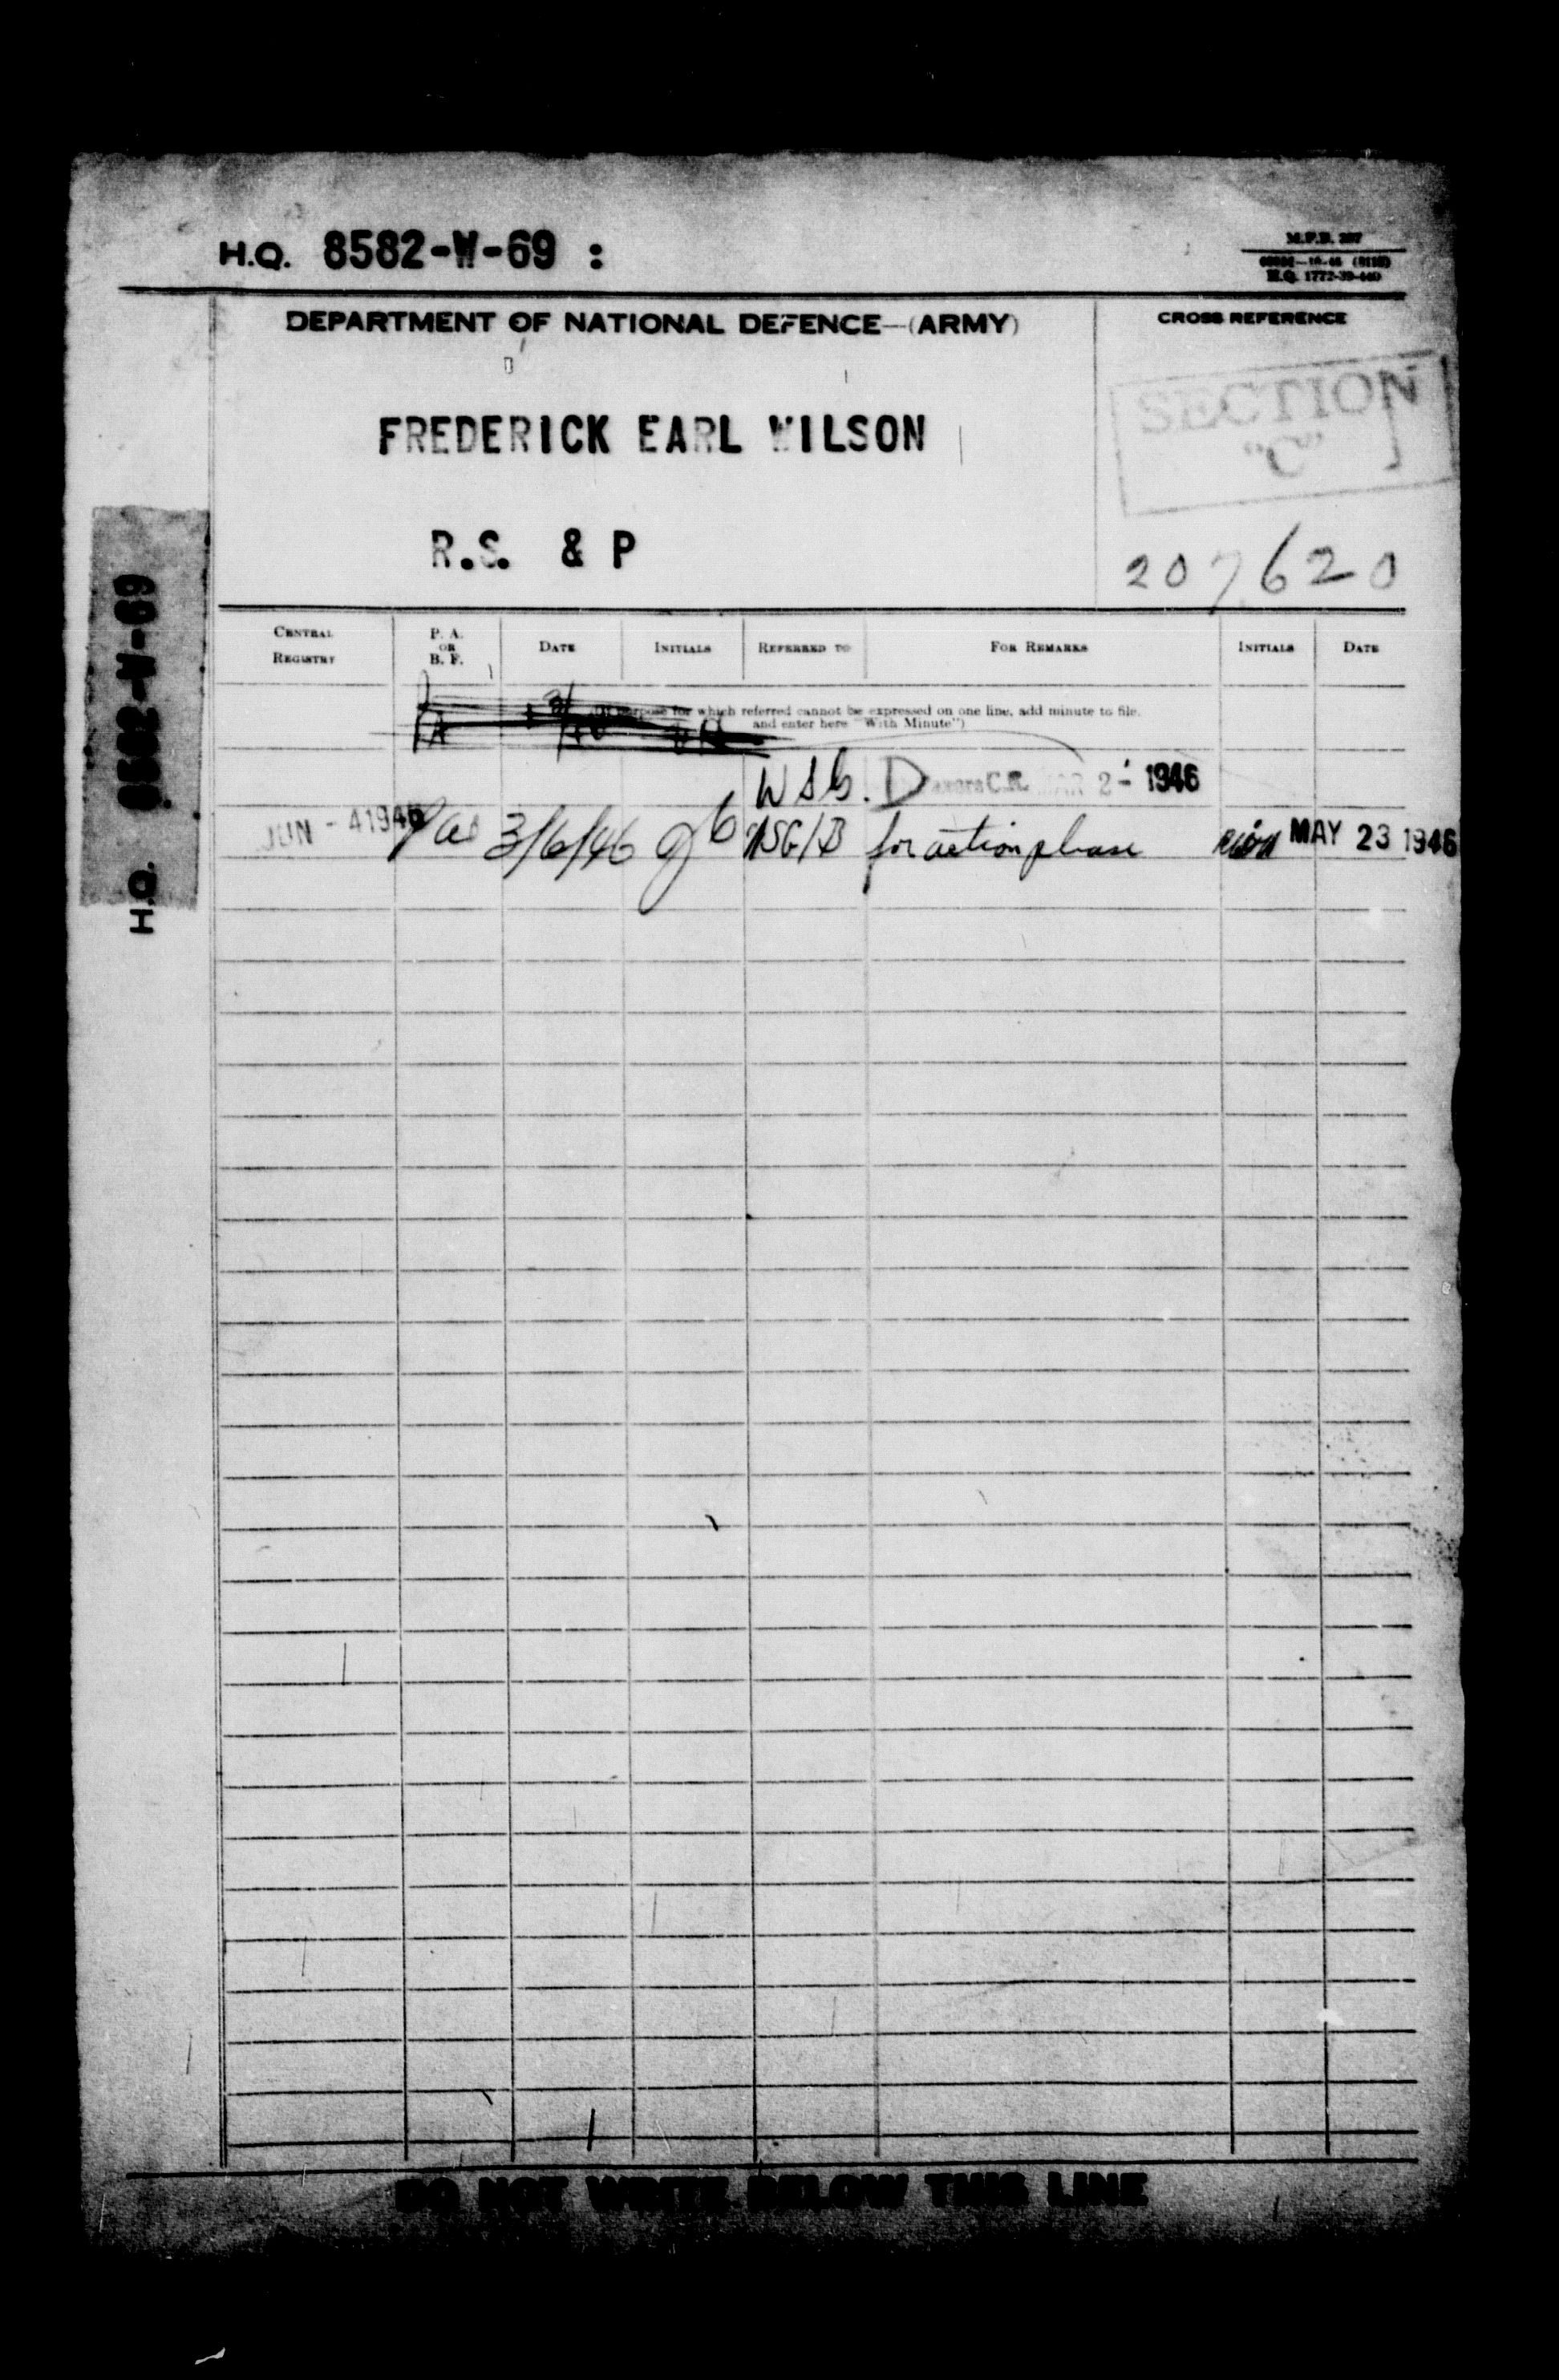 H.Q. 8582-W-69 :
M.F.B. 387
H.Q. 1772-39-440
DEPARTMENT OF NATIONAL DEFENCE—(ARMY)
CROSS REFERENCE
SECTION
"C"
FREDERICK EARL WILSON
R.S. & P
207620
H.Q. 8582-W-69
CENTRAL REGISTRY
P. A. OR B. F.
DATE
INITIALS
REFERRED TO
FOR REMARKS
INITIALS
DATE
purpose for which referred cannot be expressed on one line, add minute to file,
and enter here "With Minute")
C.R. MAR 2- 1946
JUN - 4 1946 Pa 3/6/46 WSG/B for action please MAY 23 1946
DO NOT WRITE BELOW THIS LINE